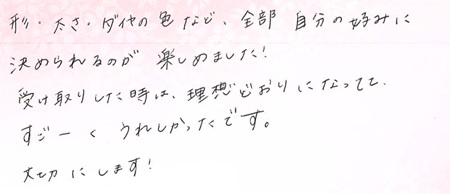 形・太さ・ダイヤの色など、全部 自分の好みに
決められるのが 楽しめました!
受け取りした時は、理想どおりになってて、
すごーく うれしかったです。
大切にします!